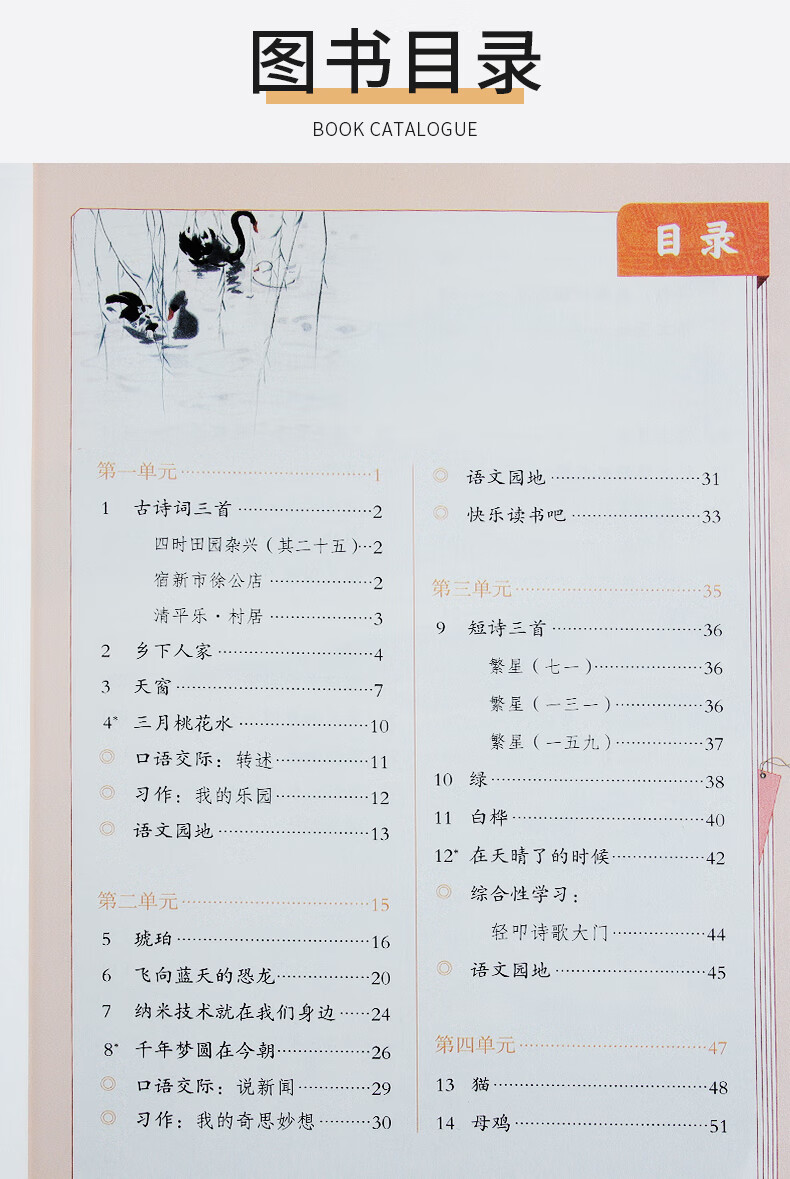 图书目录
BOOK CATALOGUE
目录
第一单元⋯⋯1
1 古诗词三首⋯⋯2
四时田园杂兴（其二十五）⋯2
宿新市徐公店⋯⋯2
清平乐·村居⋯⋯3
2 乡下人家⋯⋯4
3 天窗⋯⋯7
4* 三月桃花水⋯⋯10
◎ 口语交际：转述⋯⋯11
◎ 习作：我的乐园⋯⋯12
◎ 语文园地⋯⋯13
第二单元⋯⋯15
5 琥珀⋯⋯16
6 飞向蓝天的恐龙⋯⋯20
7 纳米技术就在我们身边⋯⋯24
8* 千年梦圆在今朝⋯⋯26
◎ 口语交际：说新闻⋯⋯29
◎ 习作：我的奇思妙想⋯⋯30
◎ 语文园地⋯⋯31
◎ 快乐读书吧⋯⋯33
第三单元⋯⋯35
9 短诗三首⋯⋯36
繁星（七一）⋯⋯36
繁星（一三一）⋯⋯36
繁星（一五九）⋯⋯37
10 绿⋯⋯38
11 白桦⋯⋯40
12* 在天晴了的时候⋯⋯42
◎ 综合性学习：
轻叩诗歌大门⋯⋯44
◎ 语文园地⋯⋯45
第四单元⋯⋯47
13 猫⋯⋯48
14 母鸡⋯⋯51